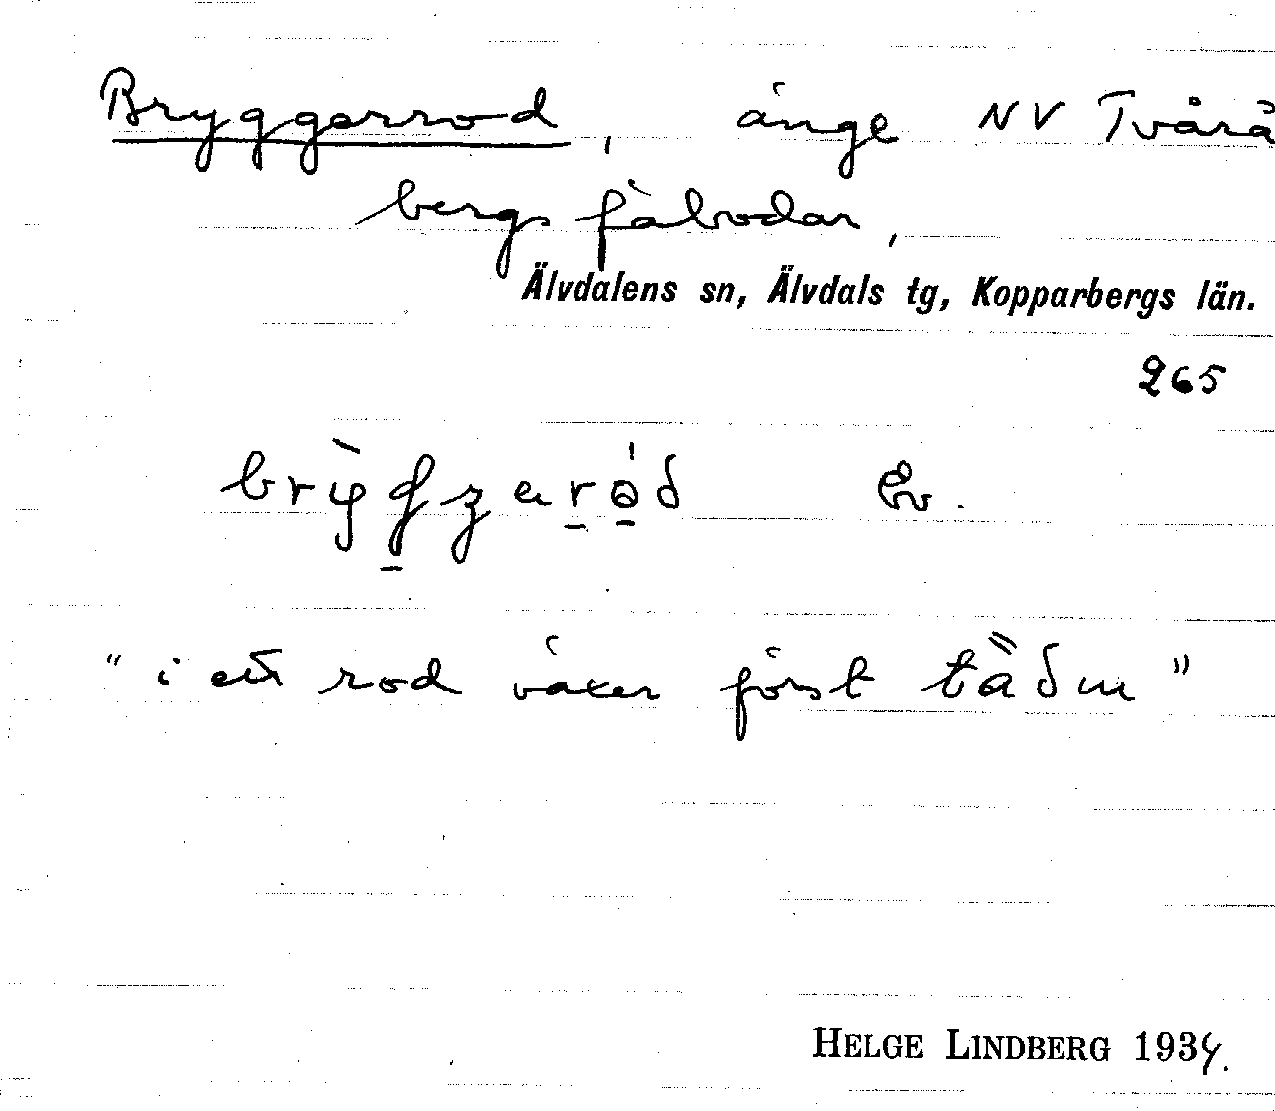 Bryggarrod, änge NV Tvärå
bergs fäbodar,
Älvdalens sn, Älvdals tg, Kopparbergs län.
265
Ev.
"i ett rod växer först tåðn"
HELGE LINDBERG 1934.